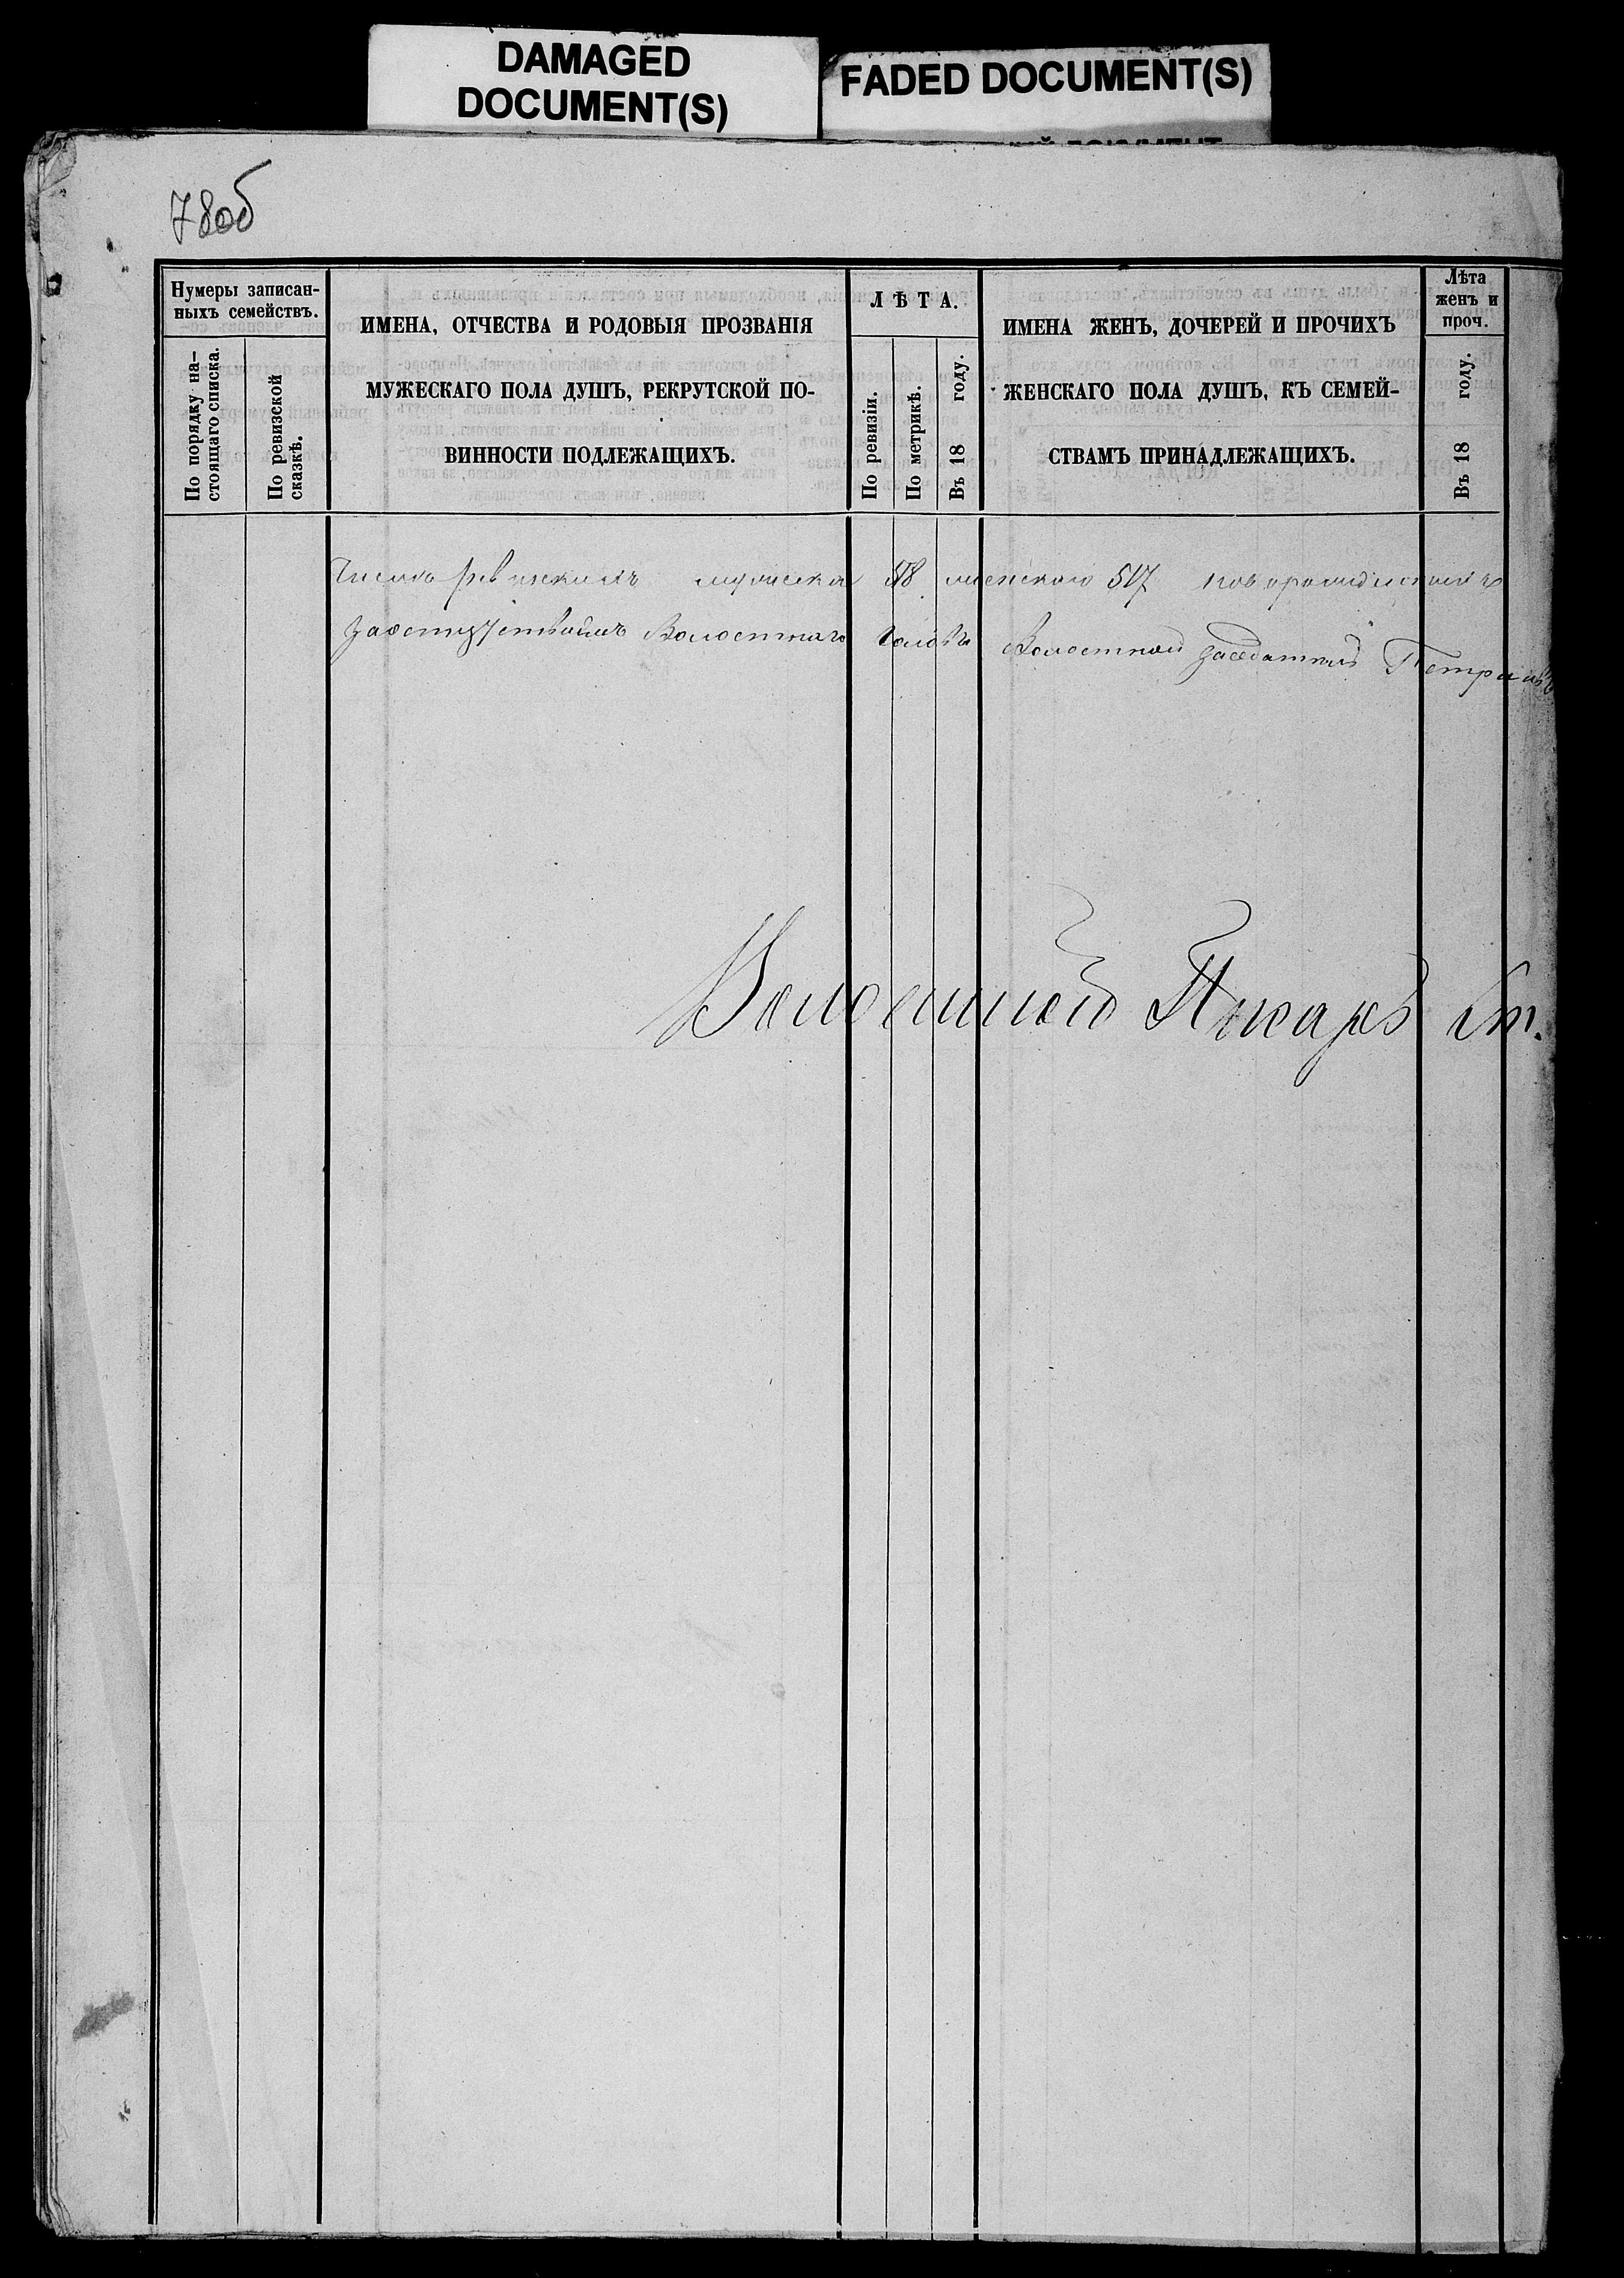 DAMAGED
DOCUMENT(S)
FADED DOCUMENT(S)
78об
Нумеры записан-
ныхъ семействъ.
По порядку на-
стоящаго списка.
По ревизской
сказкѣ.
ИМЕНА, ОТЧЕСТВА И РОДОВЫЯ ПРОЗВАНІЯ
МУЖЕСКАГО ПОЛА ДУШЪ, РЕКРУТСКОЙ ПО-
ВИННОСТИ ПОДЛЕЖАЩИХЪ.
ЛѢТА.
По ревизіи.
По метрикѣ.
Въ 18 году.
ИМЕНА ЖЕНЪ, ДОЧЕРЕЙ И ПРОЧИХЪ
ЖЕНСКАГО ПОЛА ДУШЪ, КЪ СЕМЕЙ-
СТВАМЪ ПРИНАДЛЕЖАЩИХЪ.
Лѣта
женъ и
проч.
Въ 18 году.
ревизскихъ мужеска женского 517
Волостнаго Волостной заседатель
Волостной Писарь